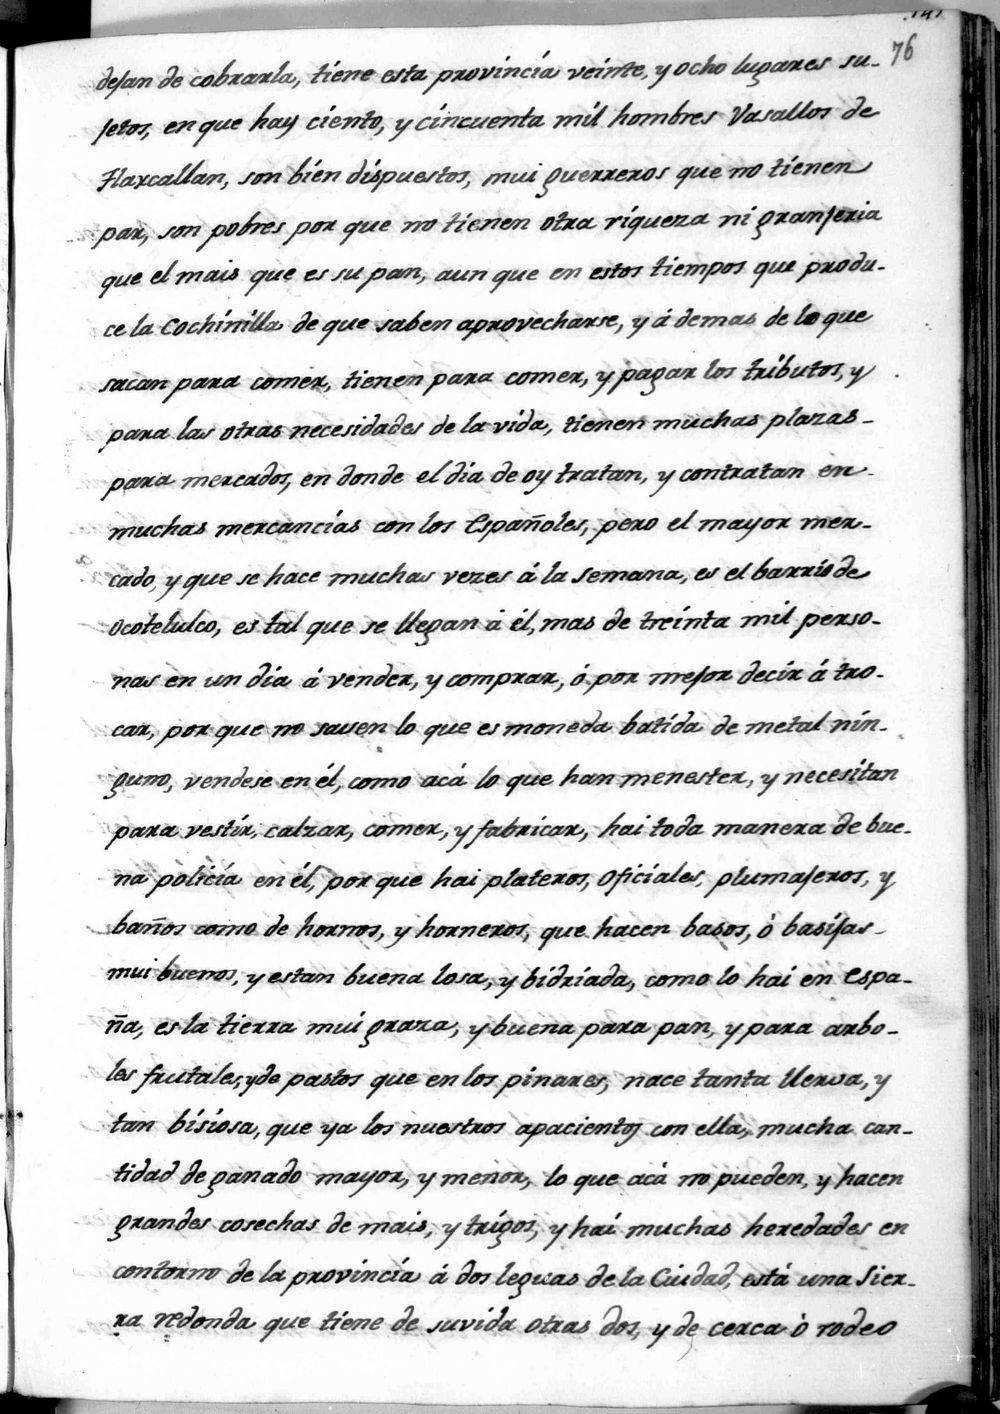 76
dejan de cobrarla, tiene esta provincia veinte, y ocho lugares su-
jetos, en que hay ciento, y cincuenta mil hombres Vasallos de
Tlaxcallan, son bien dispuestos, mui guerreros que no tienen
par, son pobres por que no tienen otra riqueza ni granjeria
que el mais que es su pan, aun que en estos tiempos que produ-
ce la Cochinilla de que saben aprovecharse, y á demas de lo que
sacan para comer, tienen para comer, y pagar los tributos, y
para las otras necesidades de la vida, tienen muchas plazas-
para mercados, en donde el dia de oy tratan, y contratan en-
muchas mercancias con los Españoles, pero el mayor mer-
cado, y que se hace muchas vezes á la semana, es el barrio de
Ocotelulco, es tal que se llegan á él, mas de treinta mil perso-
nas en un dia á vender, y comprar, ó por mejor decir á tro-
car, por que no saven lo que es moneda batida de metal nin-
guno, vendese en él, como acá lo que han menester, y necesitan
para vestir, calzar, comer, y fabricar, hai toda manera de bue-
na policia en él, por que hai plateros, oficiales, plumajeros, y
baños como de hornos, y horneros, que hacen basos, ó basijas-
mui buenos, y estan buena losa, y bidriada, como lo hai en Espa-
ña, es la tierra mui graza, y buena para pan, y para arbo-
les frutales, y de pastos que en los pinares, nace tanta llerva, y
tan bisiosa, que ya los nuestros apacientos con ella, mucha can-
tidad de ganado mayor, y menor, lo que acá no pueden, y hacen
grandes cosechas de mais, y trigos, y hai muchas heredades en
contorno de la provincia á dos leguas de la Ciudad, está una Sier-
ra redonda que tiene de suvida otras dos, y de cerca ó rodeo